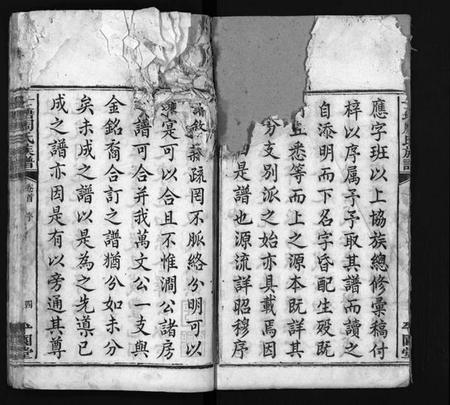 應字班以上協族總修彙稿付
梓以序属予予取其譜而讀之
自添明而下名字昏配生殁既
且悉等而上之源本既詳其
分支別派之始亦具載焉因
是譜也源流詳昭穆序
蘇疏罔不脈絡分明可以
寔可以合且不惟澗公諸房
譜可合并我萬文公一支與
金銘裔合訂之譜猶分如未分
矣未成之譜以是為之先導已
成之譜亦因是有以旁通其尊
周氏族譜
卷首 序
四